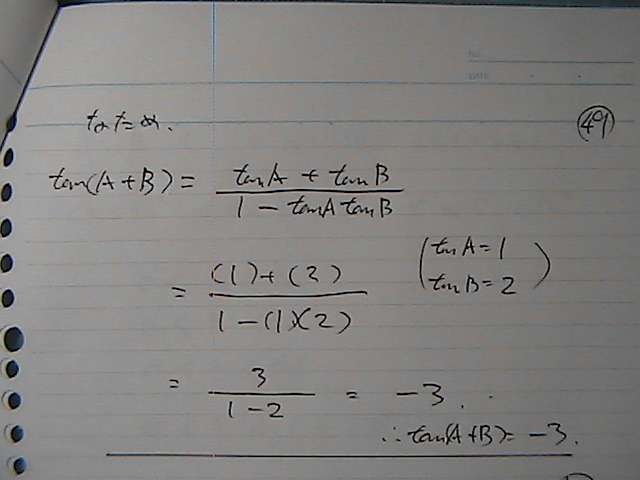 NO.
DATE
49
ただし
tan(A+B) = (tanA + tanB)/(1 - tanA tanB)
= ((1)+(2))/(1-(1)(2)) (tanA=1
tanB=2)
= 3/(1-2) = -3.
∴tan(A+B)= -3.